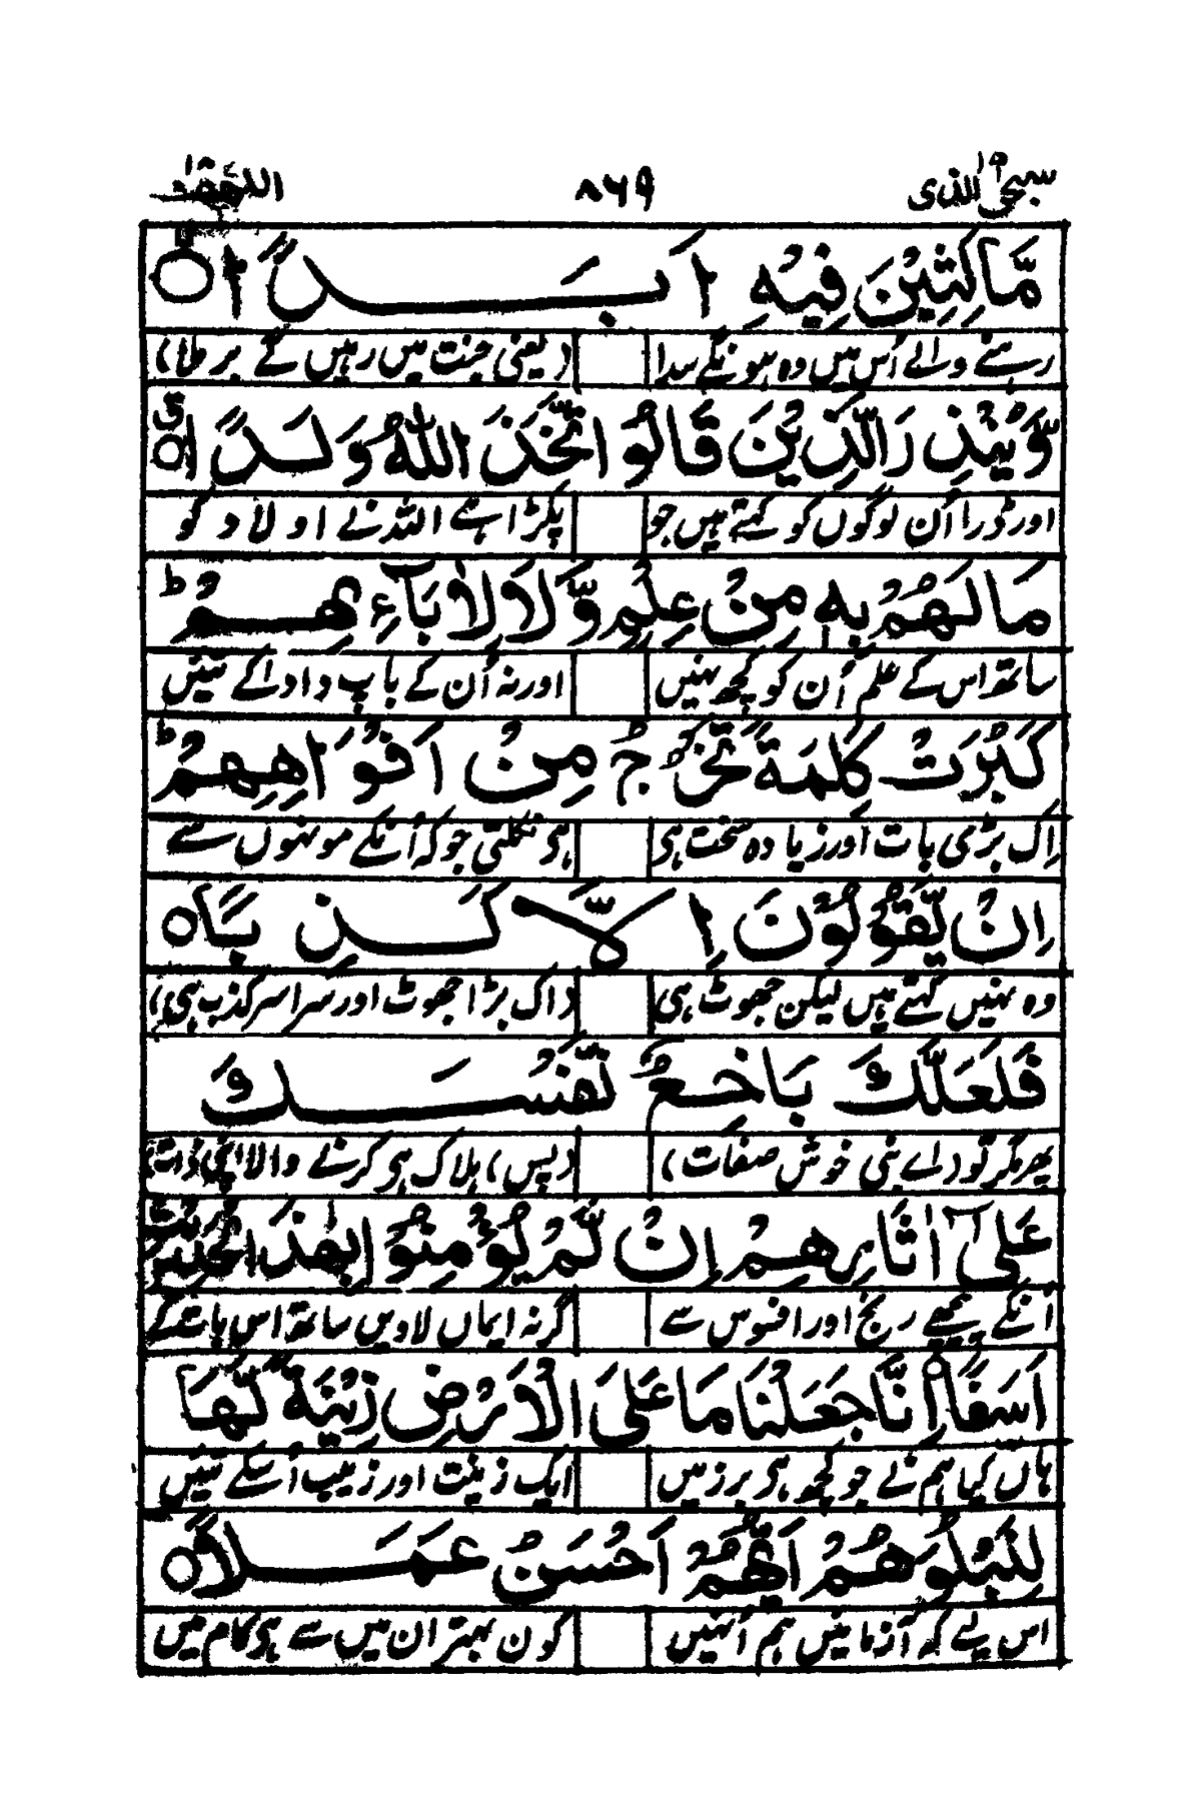 سبحٰن الذی ۸۶۹ الکہف
مَّاكِثِيْنَ فِيْهِ اَبَـــدًا ○
رہنے والے اُس میں وہ ہونگے سدا (یعنی جنت میں رہیں گے برملا)
وَّيُنْذِرَ الَّذِيْنَ قَالُوا اتَّخَذَ اللّٰهُ وَلَـدًا ○
اور ڈرا اُن لوگوں کو کہتے ہیں جو پکڑا ہے اللہ نے اولاد کو
مَا لَهُمْ بِهٖ مِنْ عِلْمٍ وَّلَا لِاٰبَآءِهِـمْ ؕ
ساتھ اس کے علم اُن کو کچھ نہیں اور نہ اُن کے باپ دادا کے تئیں
كَبُرَتْ كَلِمَةً تَخْرُجُ مِنْ اَفْوَاهِهِمْ ؕ
اِک بڑی بات اور زیادہ سخت ہی ہی نکلتی جو کہ اُنکے مونہوں سے
اِنْ يَّقُوْلُوْنَ اِلَّا كَـــذِبًا ○
وہ نہیں کہتے ہیں لیکن جھوٹ ہی (اک بڑا جھوٹ اور سراسر کذب ہی)
فَلَعَلَّكَ بَاخِـعٌ نَّفْسَـــكَ
پھر مگر تو (اے نبی خوش صفات) (پس) ہلاک ہی کرنے والا اپنی ذات
عَلٰٓى اٰثَارِهِمْ اِنْ لَّمْ يُؤْمِنُوْا بِهٰذَا الْحَدِيْثِ
اُنکے پیچھے رنج اور افسوس سے گر نہ ایماں لاویں ساتھ اس بات کے
اَسَفًا ○ اِنَّا جَعَلْنَا مَا عَلَى الْاَرْضِ زِيْنَةً لَّهَا
ہاں کیا ہم نے جو کچھ ہی بر زمیں ایک زینت اور زیب اُسکے تئیں
لِنَبْلُوَهُمْ اَيُّهُمْ اَحْسَنُ عَمَـــلًا ○
اس لیے کہ آزمائیں ہم اُنہیں کون بہتر ان میں سے ہی کام میں